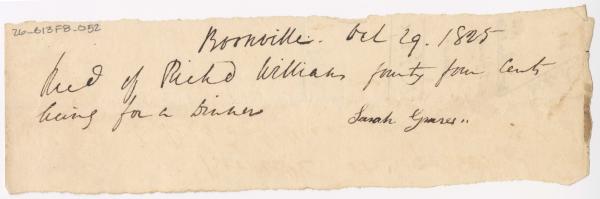 26-013F8-052
Boonville. Oct 29. 1825
Recd of Richd Williams fourty four Cents
being for a Dinner
Sarah Graves..